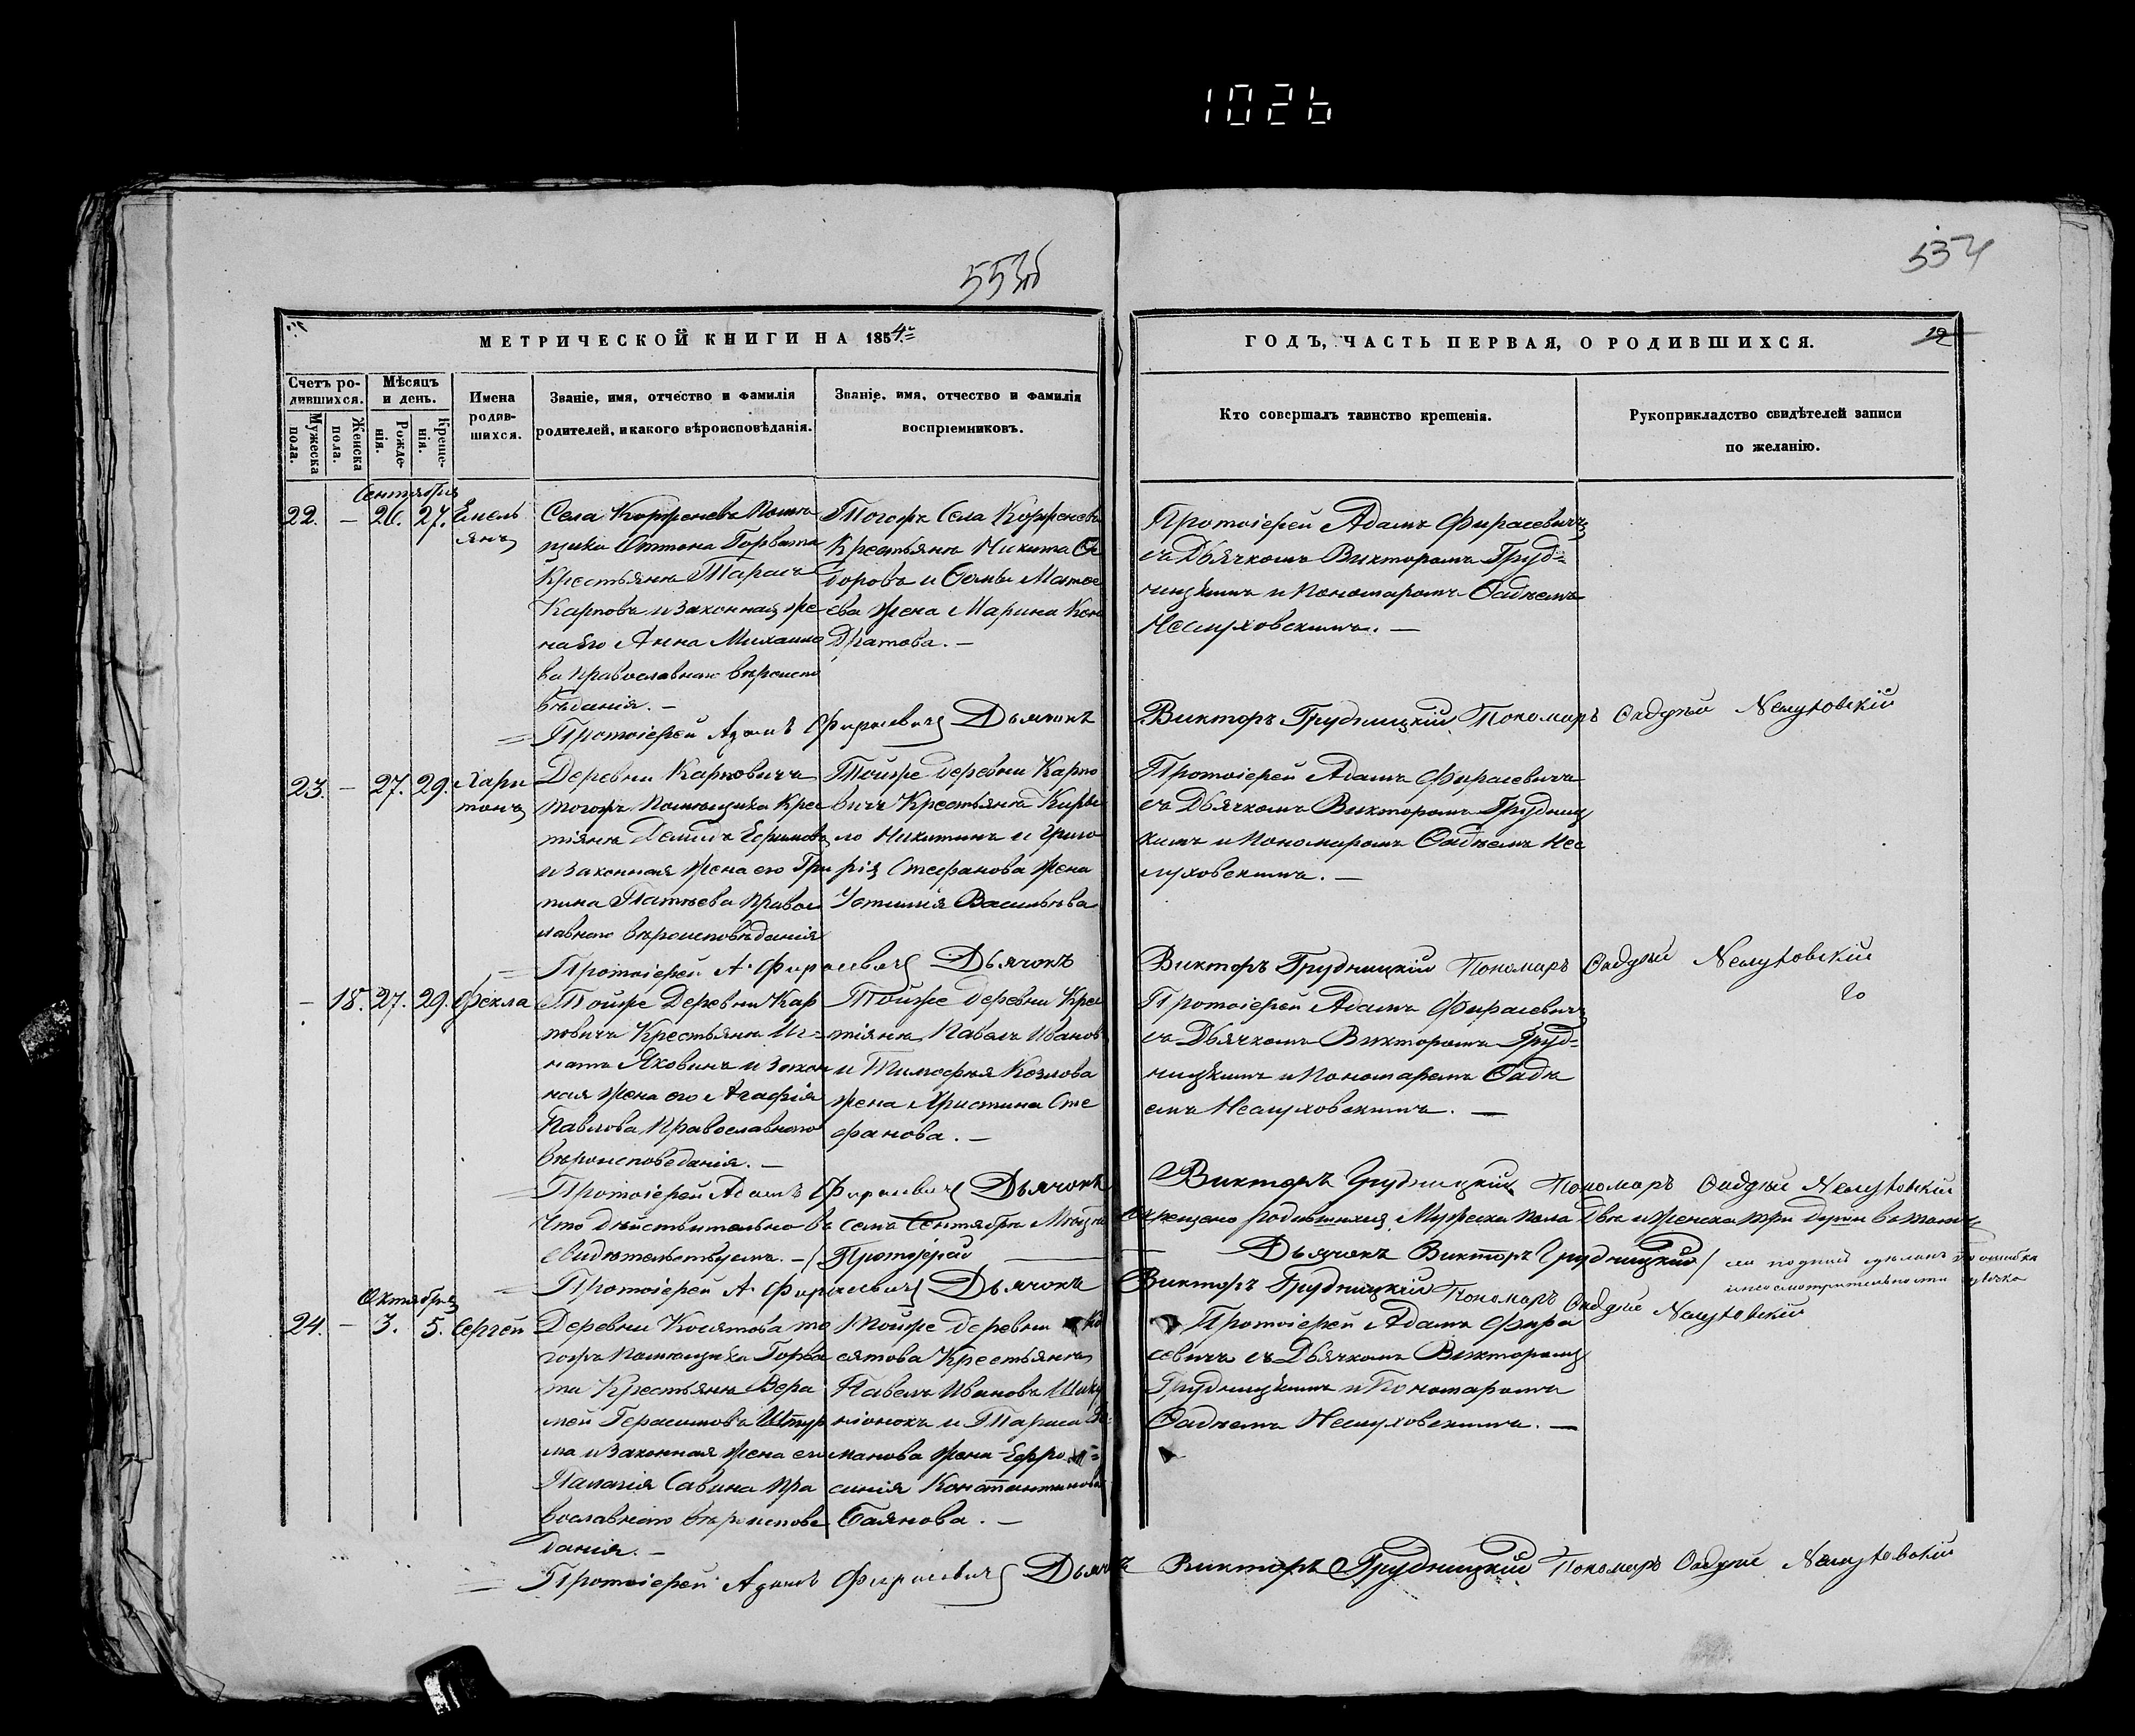 1026
553об
554
МЕТРИЧЕСКОЙ КНИГИ НА 1854
ГОДЪ, ЧАСТЬ ПЕРВАЯ, О РОДИВШИХСЯ.
Счетъ ро-
дившихся.
Мѣсяцъ
и день.
Имена
родив-
шихся.
Званіе, имя, отчество и фамилія
родителей, и какого вѣроисповѣданія.
Званіе, имя, отчество и фамилія
воспріемниковъ.
Кто совершалъ таинство крещенія.
Рукоприкладство свидѣтелей записи
по желанію.
Мужеска
пола.
Женска
пола.
Рожде-
нія.
Креще-
нія.
Сентября
22. – 26. 27. Емель
янъ
Села Корженевъ Помѣ
щика Оттона Горвата
Крестьянъ Тарасъ
Карповъ и законная же
на его Анна Михаило
ва православнаго вѣроиспо
вѣданія. –
Тогожъ Села Корженевъ
Крестьянъ Никита Си
доровъ и Матѳе
ева жена Марина Кон
дратова. –
Протоіерей Адамъ Фирасевичъ
съ Дьячкомъ Викторомъ Груд=
ницкимъ и Пономаромъ Фадѣемъ
Неслуховскимъ. –
Протоіерей Адамъ Фирасевичъ Дьячокъ
Викторъ Грудницкій Пономарь Фадѣй Неслуховскій
23. – 27. 29. Хари
тонъ
Деревни Карповичъ
тогожъ Помѣщика Крес
тіянъ Демидъ Ефимовъ
и законная жена его
православ
наго вѣроисповѣданія
Тойже деревни Карпо
вичъ Крестьянъ Кири
ло Никитинъ и Григо
рія Стефанова жена
Устинія Васильева
Протоіерей Адамъ Фирасевичъ
съ Дьячкомъ Викторомъ Грудниц
кимъ и Пономаромъ Фадѣемъ Нес
луховскимъ. –
Протоіерей А. Фирасевичъ Дьячокъ
Викторъ Грудницкій Пономарь Фадѣй Неслуховскій
– 18. 27. 29. Фекла
Тойже Деревни Кар
повичъ Крестьянъ Иг=
натъ Яковинъ и закон
ная жена его Агафія
Павлова Православнаго
вѣроисповеданія. –
Тойже деревни Крес
тіянъ Павелъ Ивановъ
и Тимофея Козлова
жена Христина Сте
фанова. –
Протоіерей Адамъ Фирасевичъ
съ Дьячкомъ Викторомъ Груд=
ницкимъ и Пономаремъ Фадѣ
емъ Неслуховскимъ. –
Протоіерей Адамъ Фирасевичъ Дьячокъ
Викторъ Грудницкій Пономарь Фадѣй Неслуховскій
Что дѣйствительно въ семъ Сентябрѣ Мѣсяцѣ
родившихся Мужеска пола два и женска три въ томъ
свидѣтельствуемъ. – / Протоіерей
Дьячокъ Викторъ Грудницкій /
Протоіерей А. Фирасевичъ Дьячокъ
Викторъ Грудницкій Пономарь Фадѣй Неслуховскій
Октября
24. – 3. 5. Сергей
Деревни Косятова то
гожъ Помѣщика Горва
та Крестьянъ
Герасимовъ
и законная жена его
Палагія Савина пра
вославнаго вѣроисповѣ
данія. –
тойже деревни Ко
сятова Крестьянъ
Павелъ Ивановъ
и Тараса Ро
манова жена Ефро=
синія Константинова
Баянова. –
Протоіерей Адамъ Фира
севичъ съ Дьячкомъ Викторомъ
Грудницкимъ и Пономаромъ
Фадѣемъ Неслуховскимъ. –
Протоіерей Адамъ Фирасевичъ Дьячокъ
Викторъ Грудницкій Пономарь Фадѣй Неслуховскій